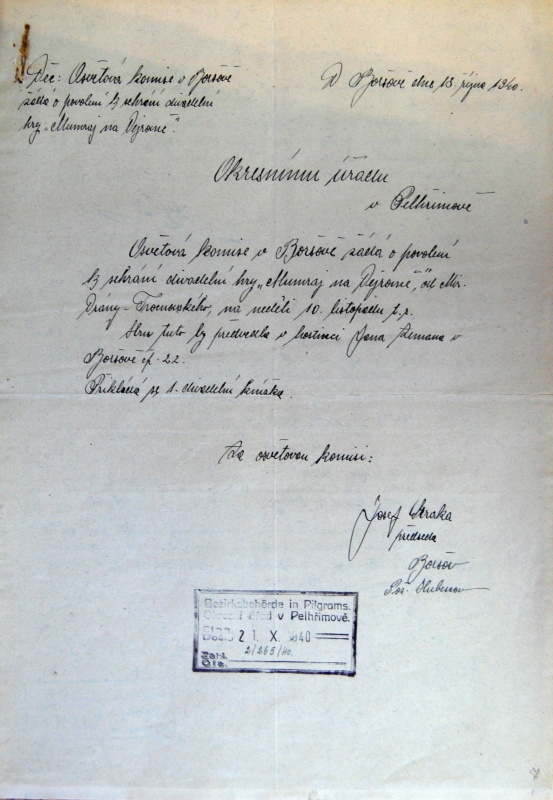 Věc: Osvětová komise v Boršově
žádá o povolení k sehrání divadelní
hry „Mumraj na Vejrově“.
V Boršově dne 13. října 1940.
Okresnímu úřadu
v Pelhřimově
Osvětová komise v Boršově žádá o povolení
k sehrání divadelní hry „Mumraj na Vejrově“, od Mir.
Vrány-Tromovského, na neděli 10. listopadu t.r.
Hru tuto by předvedla v hostinci Jana Zemana v
Boršově čp. 22.
Přikládá se 1 divadelní knížka.
Za osvětovou komisi:
Josef
předseda
Boršov
Bezirksbehörde in Pilgrams.
Okresní úřad v Pelhřimově.
21. X. 1940
Zahl
7